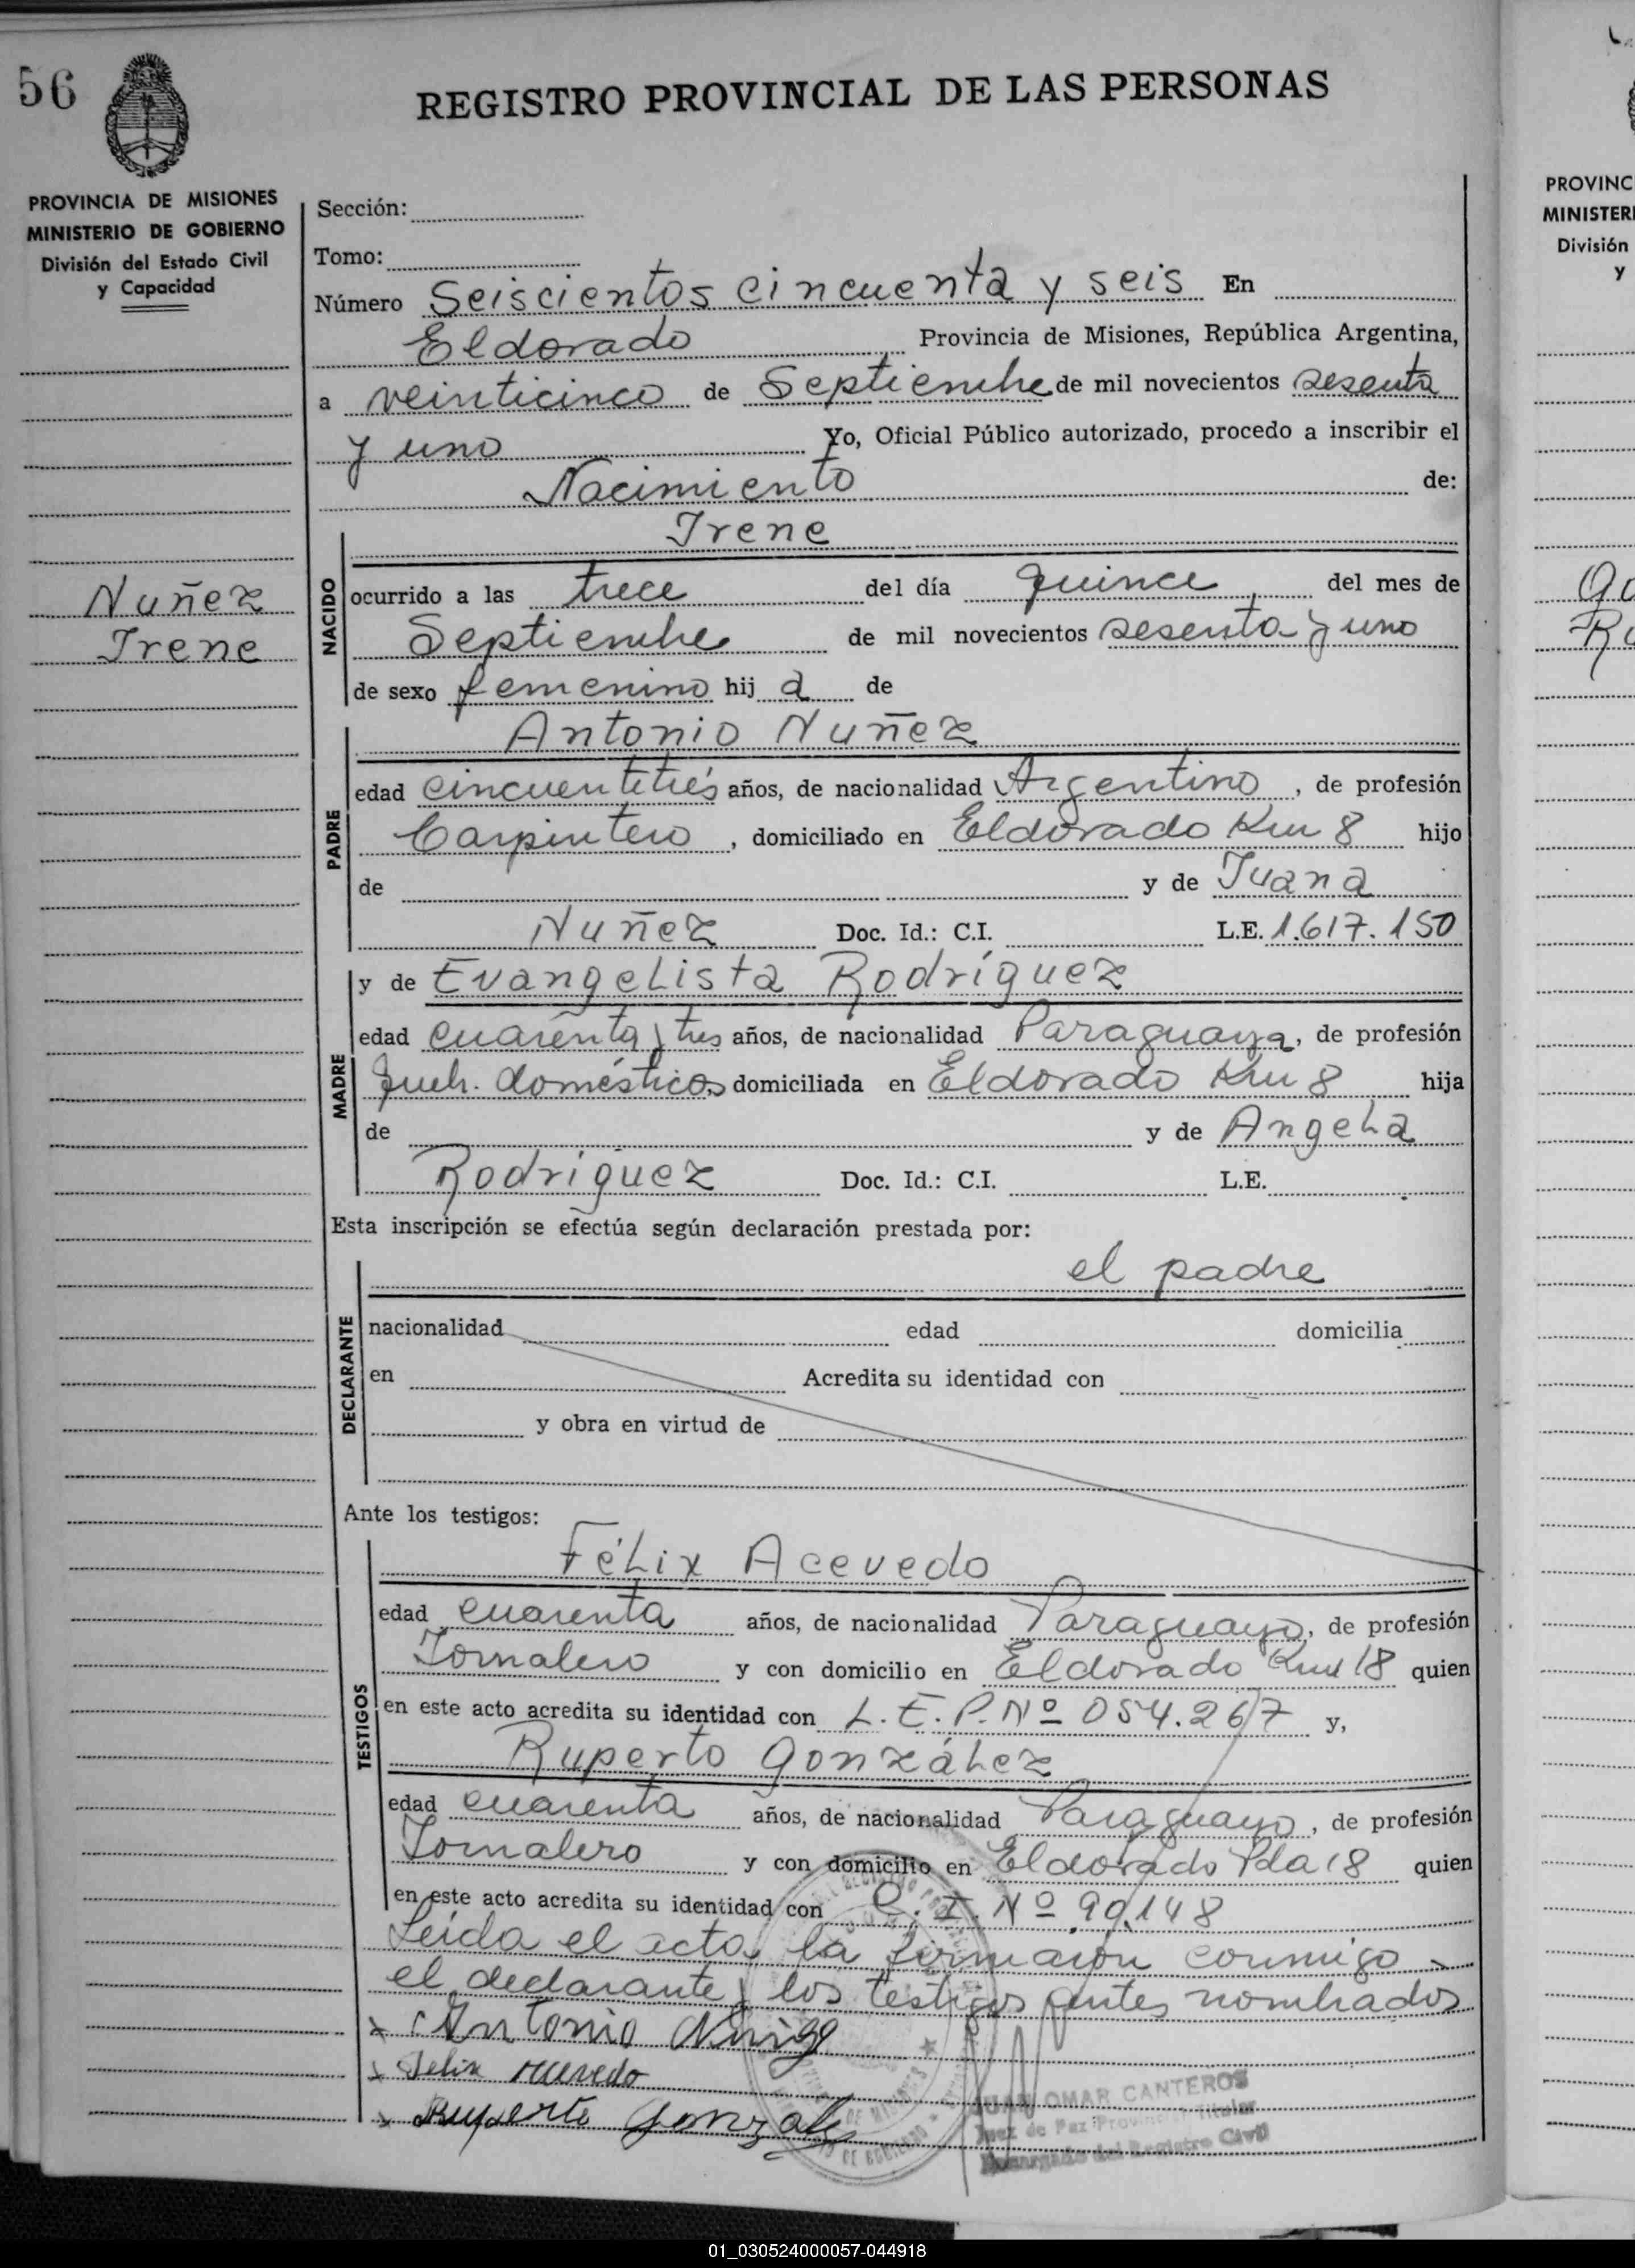 56
REGISTRO PROVINCIAL DE LAS PERSONAS
PROVINCIA DE MISIONES
MINISTERIO DE GOBIERNO
División del Estado Civil
y Capacidad
Sección:
Tomo:
Número Seiscientos cincuenta y seis En
Eldorado Provincia de Misiones, República Argentina,
a veinticinco de Septiembre de mil novecientos sesenta
y uno Yo, Oficial Público autorizado, procedo a inscribir el
Nacimiento de:
Nuñez
Irene
NACIDO
Irene
ocurrido a las trece del día quince del mes de
Septiembre de mil novecientos sesenta y uno
de sexo femenino hij a de
PADRE
Antonio Nuñez
edad cincuentitrés años, de nacionalidad Argentino, de profesión
Carpintero, domiciliado en Eldorado Km 8 hijo
de y de Juana
Nuñez Doc. Id.: C.I. L.E. 1.617.150
MADRE
y de Evangelista Rodríguez
edad cuarenta y tres años, de nacionalidad Paraguaya, de profesión
Queh. domésticos, domiciliada en Eldorado Km 8 hija
de y de Angela
Rodríguez Doc. Id.: C.I. L.E.
Esta inscripción se efectúa según declaración prestada por:
DECLARANTE
el padre
nacionalidad edad domicilia
en Acredita su identidad con
y obra en virtud de
Ante los testigos:
TESTIGOS
Félix Acevedo
edad cuarenta años, de nacionalidad Paraguayo, de profesión
Jornalero y con domicilio en Eldorado Km 18 quien
en este acto acredita su identidad con L.E.P. Nº 054.267 y,
Ruperto González
edad cuarenta años, de nacionalidad Paraguayo, de profesión
Jornalero y con domicilio en Eldorado Pda 18 quien
en este acto acredita su identidad con C.I. Nº 90.148
Leída el acta, la firmaron conmigo
el declarante y los testigos antes nombrados
x Antonio Nuñez
x Felix Acevedo
x Ruperto Gonzalez
JUAN OMAR CANTEROS
Juez de Paz Provincial Titular
Encargado del Registro Civil
PROVINC
MINISTERI
División
y
01_030524000057-044918